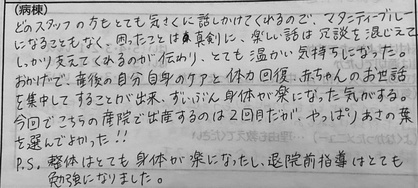 (病棟)
どのスタッフの方もとても気さくに話しかけてくれるので、マタニティーブルー
になることもなく、困ったことは真剣に、楽しい話は冗談を混じえて
しっかり支えてくれるのが伝わり、とても温かい気持ちになった。
おかげで、産後の自分自身のケアと体力回復、赤ちゃんのお世話
を集中してすることが出来、ずいぶん身体が楽になった気がする。
今回でこちらの産院で出産するのは2回目だが、やっぱりあさの葉
を選んでよかった!!
P.S. 整体はとても身体が楽になったし、退院前指導はとても
勉強になりました。